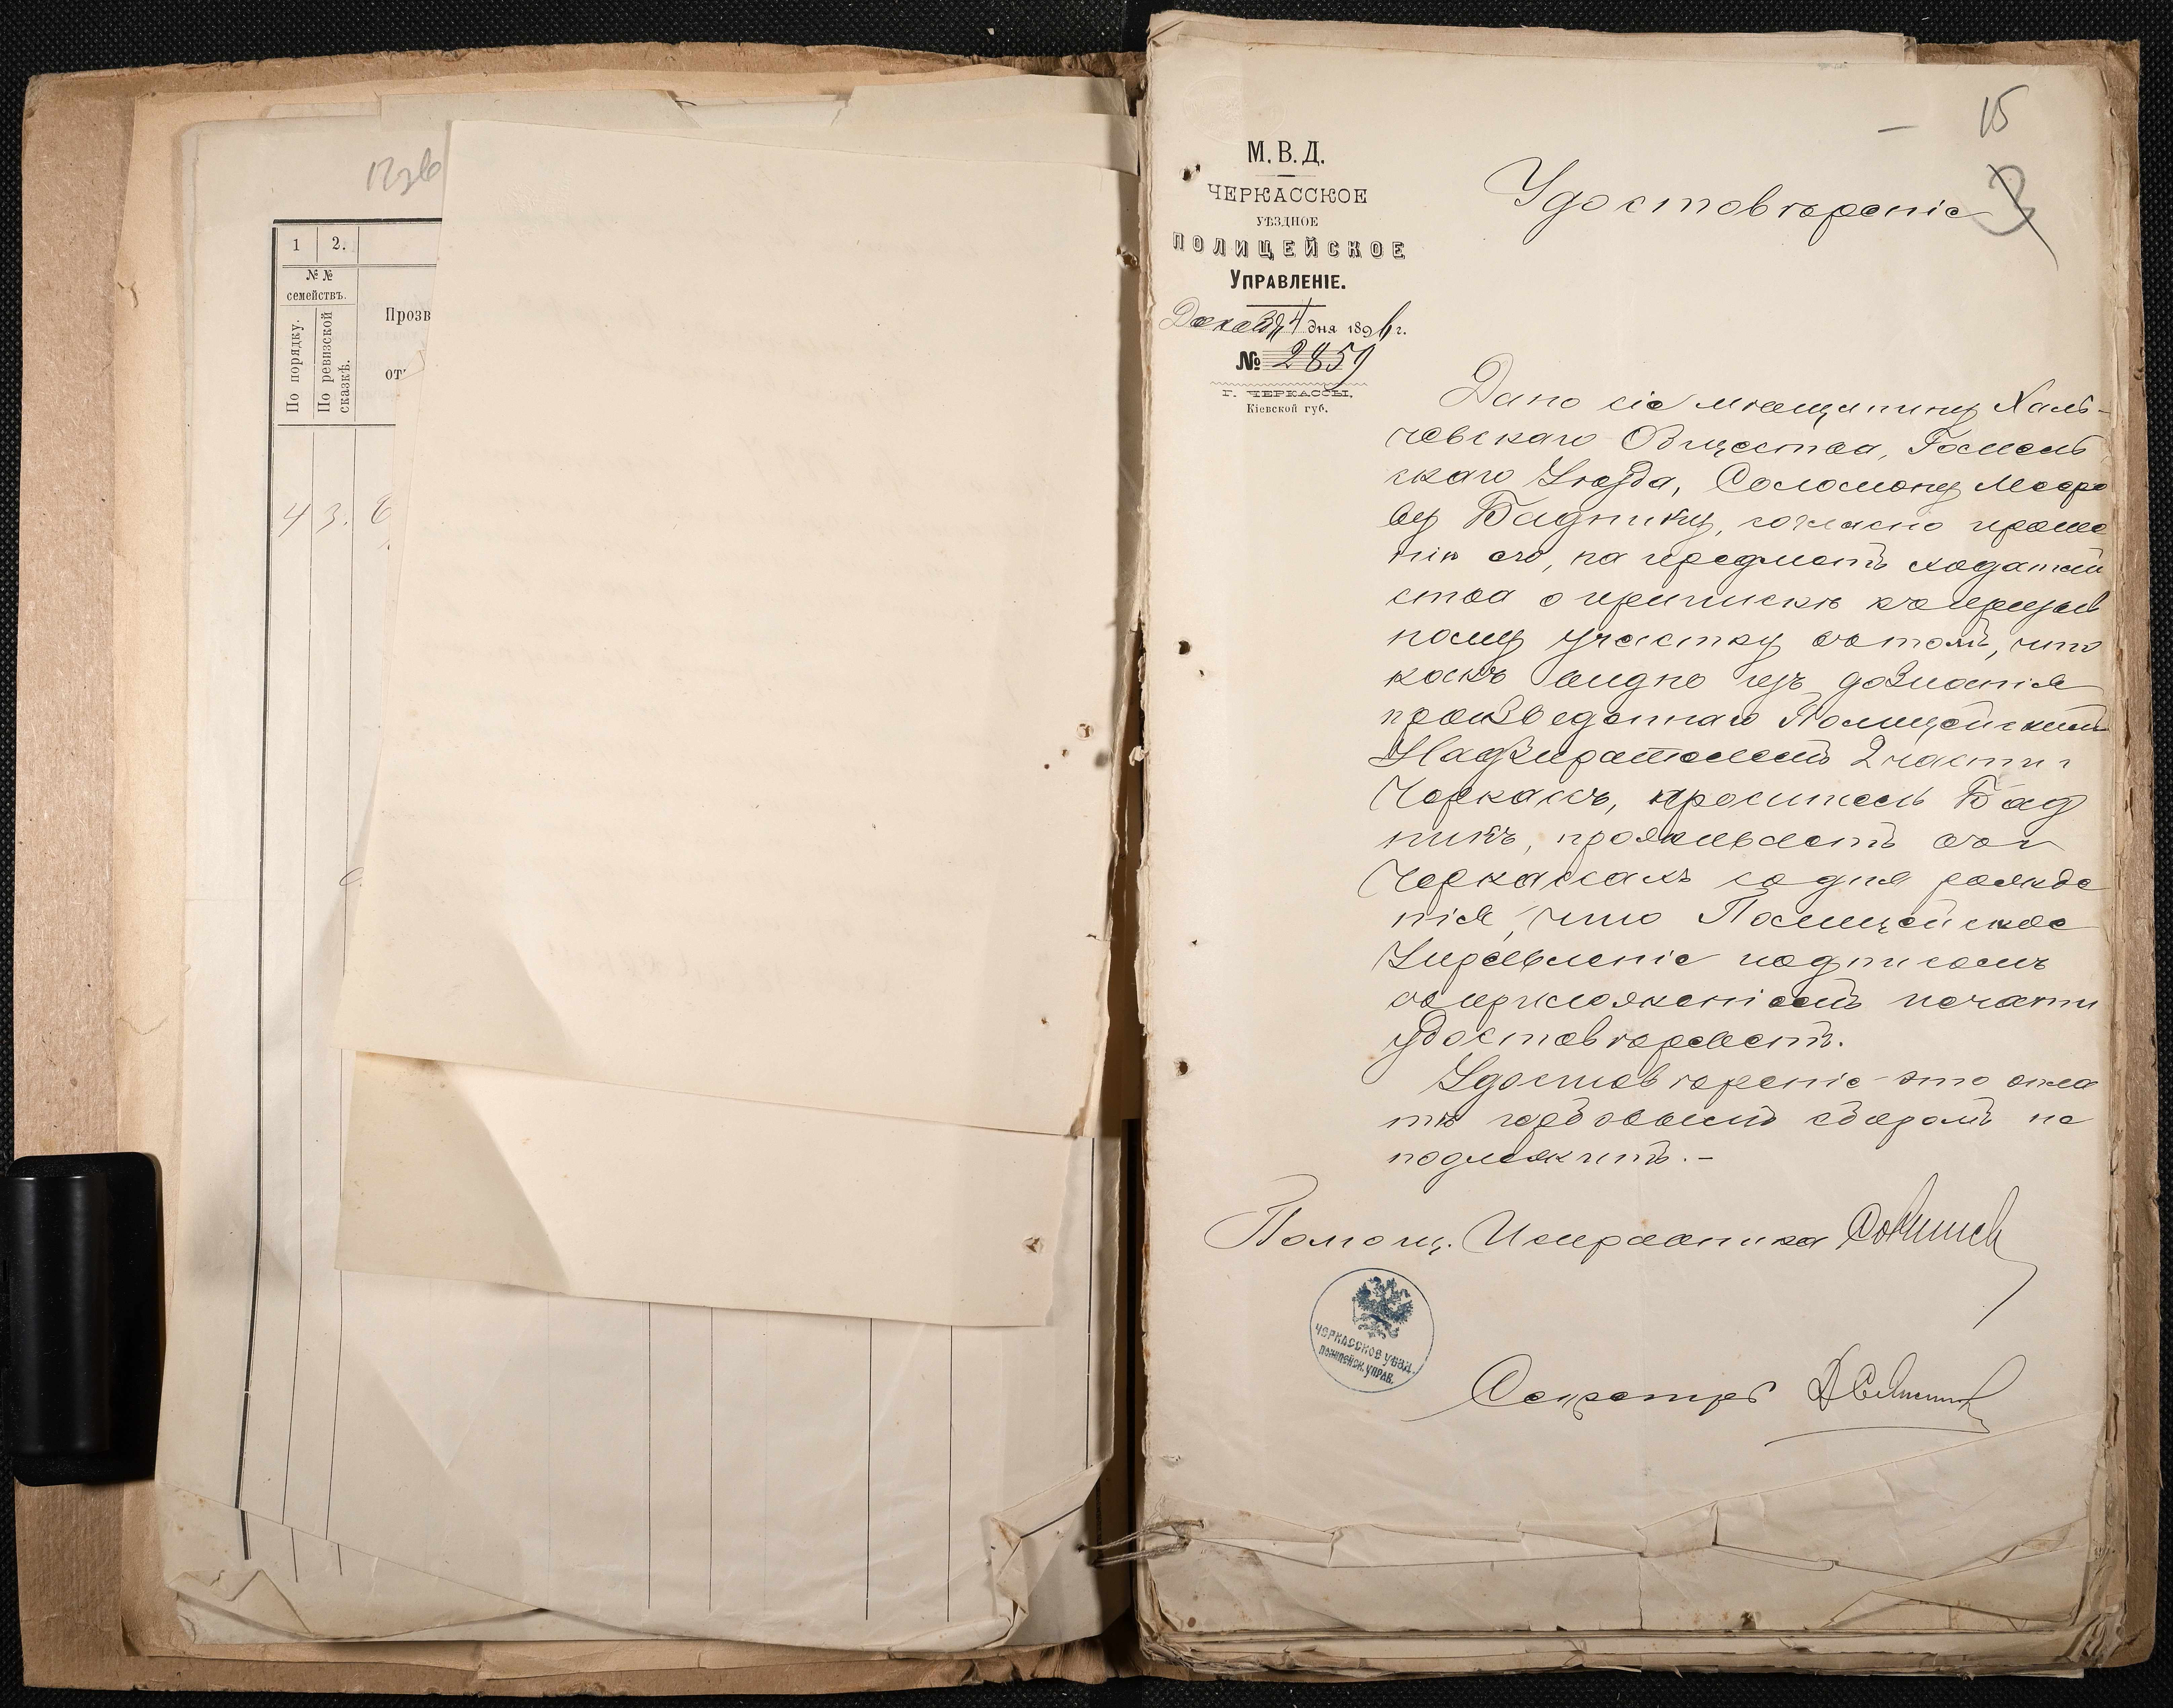 1 2.
№ №
семействъ.
По порядку.
По ревизской сказкѣ.
Прозв
от
4 3.
15
3
М. В. Д.
ЧЕРКАССКОЕ
УѢЗДНОЕ
ПОЛИЦЕЙСКОЕ
УПРАВЛЕНІЕ.
4 дня 1896 г.
№ 2859
Г. ЧЕРКАССЫ,
Кіевской губ.
Удостовѣреніе
Дано сіе мѣщанину Халь-
чевскаго Общества, Гомель
скаго Уѣзда, Соломону Мееро
ву Баднику, согласно проше
нію его, на предметъ ходатай
ства о припискѣ къ призыв
ному участку въ томъ, что
какъ видно изъ дознанія
произведеннаго Полицейскимъ
Надзирателемъ 2 части г
Черкассъ, проситель Бад
никъ, проживаетъ въ г
Черкассахъ со дня рожде
нія, что Полицейское
Управленіе подписомъ
съ приложеніемъ печати
удостовѣряетъ.
Удостовѣреніе это опла
тѣ гербовымъ сборомъ не
подлежитъ.-
Помощ. Исправника
ЧЕРКАССКОЕ УѢЗД.
ПОЛИЦЕЙСК. УПРАВ.
Секретарь